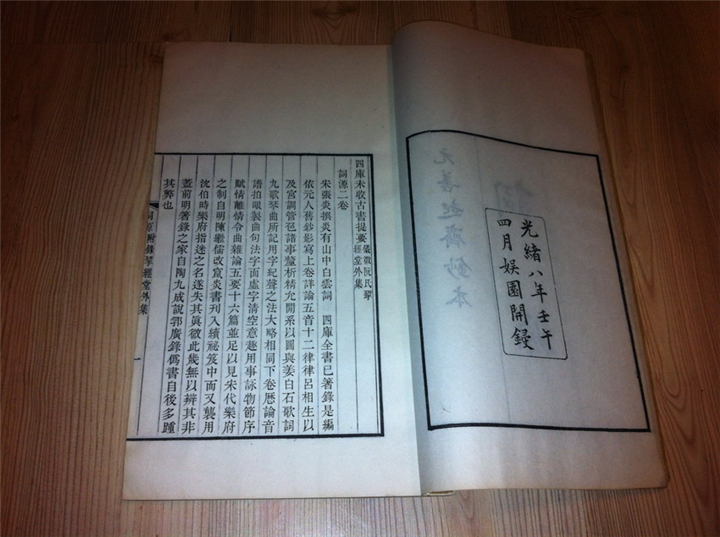 光緒八年壬午
四月娛園開鋟
四庫未收古書提要 儀徵阮氏揅經堂外集
詞源二卷
宋張炎撰炎有山中白雲詞 四庫全書已著錄是編
依元人舊鈔影寫上卷詳論五音十二律律呂相生以
及宮調管色諸事釐析精允間系以圖與姜白石歌詞
九歌琴曲所記用字紀聲之法大略相同下卷歷論音
譜拍眼製曲句法字面虛字清空意趣用事詠物節序
賦情離情令曲雜論五要十六篇並足以見宋代樂府
之制自明陳繼儒改竄炎書刊入續祕笈中而又襲用
沈伯時樂府指迷之名遂失其真微此幾無以辨其非
蓋前明著錄之家自陶九成說郛廣錄僞書自後多踵
其弊也
詞源附錄揅經堂外集
一